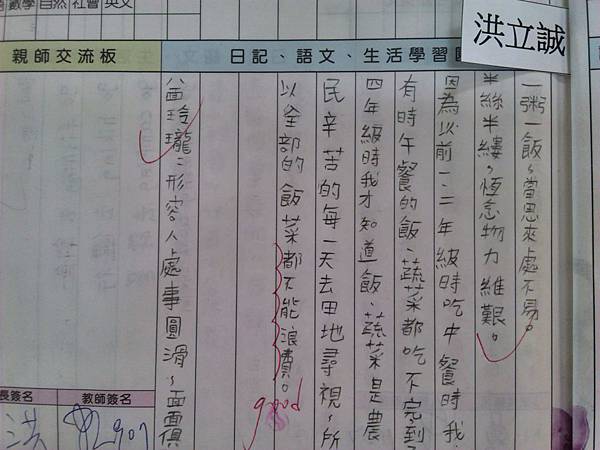 數學 自然 社會 英文
洪立誠
親師交流板
日記、語文、生活學習
一粥一飯、當思來處不易。
半絲半縷、恆念物力維艱。
因為以前一、二年級時吃中餐時我
有時午餐的飯、蔬菜都吃不完到
四年級時我才知道飯、蔬菜是農
民辛苦的每一天去田地尋視、所
以全部的飯菜都不能浪費。
good
玲瓏：形容人處事圓滑、面面俱
長簽名
教師簽名
洪